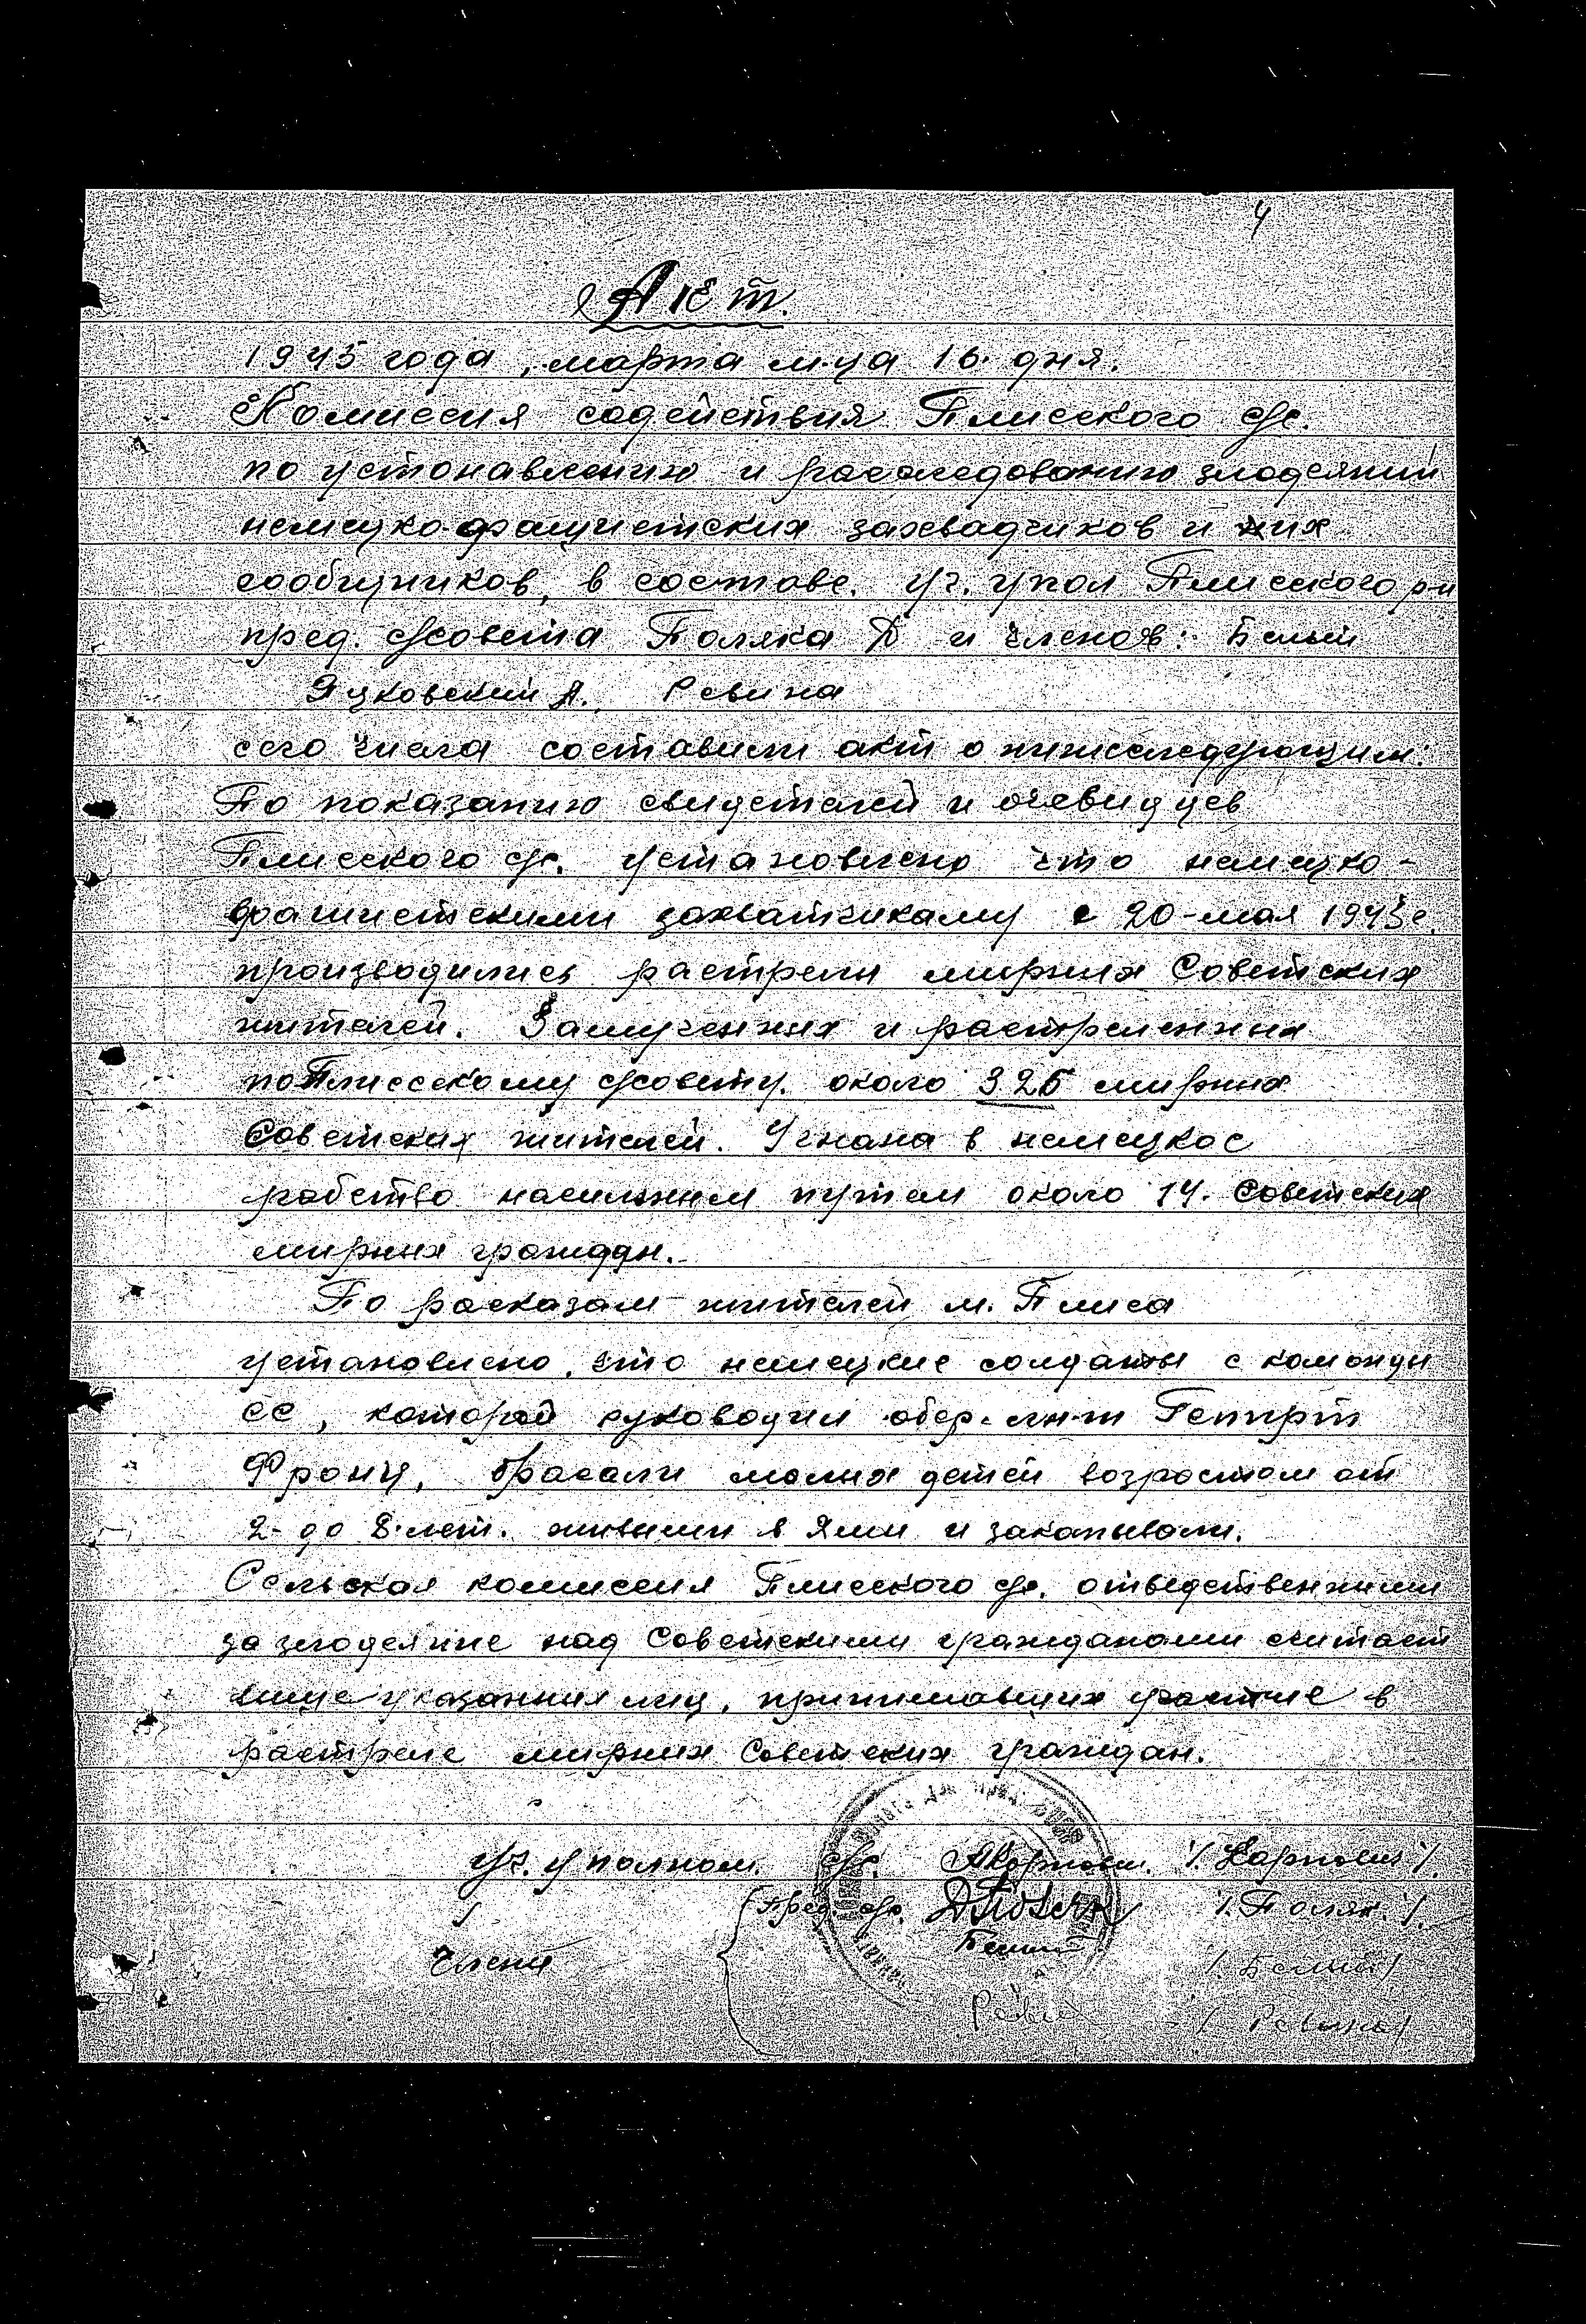 4
Акт.
1945 года, марта м-ца 16. дня.
Комиссия содействия Плисского с/с.
по устонавлению и расследованию злодеяний
немецко-фашистских захвадчиков и их
сообщников, в составе. уч. упол Плисского р-н
пред. с/совета Поляка Д и членов: Белый
Яцковский А. Ревина
сего числа составили акт о нижеследующим:
По показанию свидетелей и очевидцев
Плисского с/с. установлено что немецко-
фашистскими захватчикаму с 20-мая 1943г.
производились растрелы мирных Советских
жителей. Замученных и растреленных
по Плисскому с/совету. около 325 мирных
Советских жителей. Угнана в немецкое
рабство насильным путем около 14. Советских
мирных граждан.
По расказам жителей м. Плиса
установлено, что немецкие солдаты с команды
СС, которой руководил обер. лн-т
Франц, брасали малых детей возрастом от
2- до 8-лет. живыми в ямы и закапывали.
Сельская комиссия Плисского с/с. отведственными
за злодеяние над Советскими гражданами считает
выше указанных лиц, принимавших участие в
растреле мирных Советских граждан.
Уч. уполном. с/с. /Карпович/.
Пред. с/с. /. Поляк. /.
Члены Белый /. Белый/
/ Ревина/